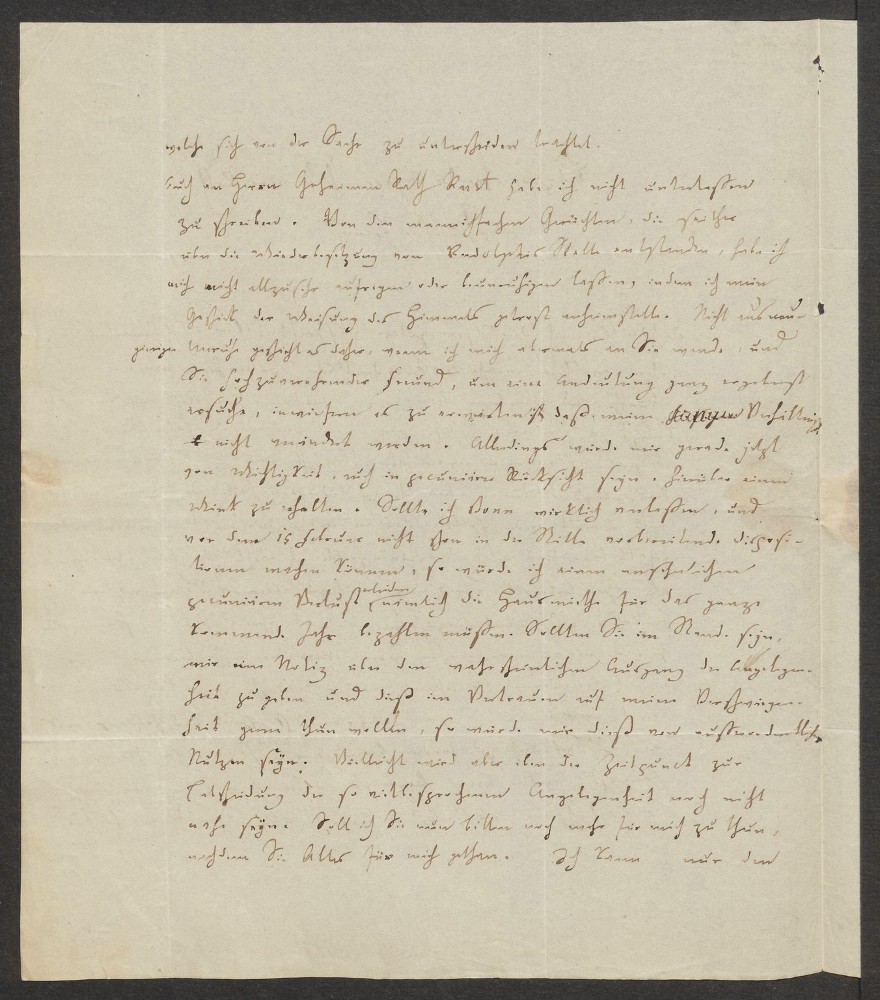 welche sich von der Sache zu unterscheiden trachtet.
Auch an Herrn Geheimen Rath Rust habe ich nicht unterlassen
zu schreiben. Von den mannichfachen Gerüchten, die seither
über die Wiederbesetzung von Rudolphis Stelle entstanden, habe ich
mich nicht allzusehr aufregen oder beunruhigen lassen, indem ich mein
Geschick der Weisung des Himmels getrost anheimstelle. Nicht aus neu-
gieriger Unruhe geschieht es daher, wenn ich mich abermals an Sie wende, und
Sie hochzuverehrender Freund, um eine Andeutung ganz ergebenst
ersuche, inwiefern es zu erwarten ist daß meine Verhältniße
nicht verändert werden. Allerdings würde mir gerade jetzt
von Wichtigkeit, auch in pecuniärer Rücksicht seyn, hierüber einen
Wink zu erhalten. Sollte ich Bonn wirklich verlassen, und
vor dem 15 Februar nicht schon in der Stille vorbereitende Disposi-
tionen machen können, so würde ich einen ansehnlichen
pecuniären Verlust erleiden nämlich die Hausmiethe für das ganze
kommende Jahr bezahlen müssen. Sollten Sie im Stande seyn,
mir eine Notiz über den wahrscheinlichen Ausgang der Angelegen-
heit zu geben und dieß im Vertrauen auf meine Verschwiegen-
heit gern thun wollen, so würde mir dieß von außerordentlichem
Nutzen seyn. Vielleicht wird aber eben der Zeitpunct zur
Entscheidung der so vielbesprochenen Angelegenheit noch nicht
nahe seyn. Soll ich Sie nun bitten noch mehr für mich zu thun,
nachdem Sie Alles für mich gethan. Ich kann nur den